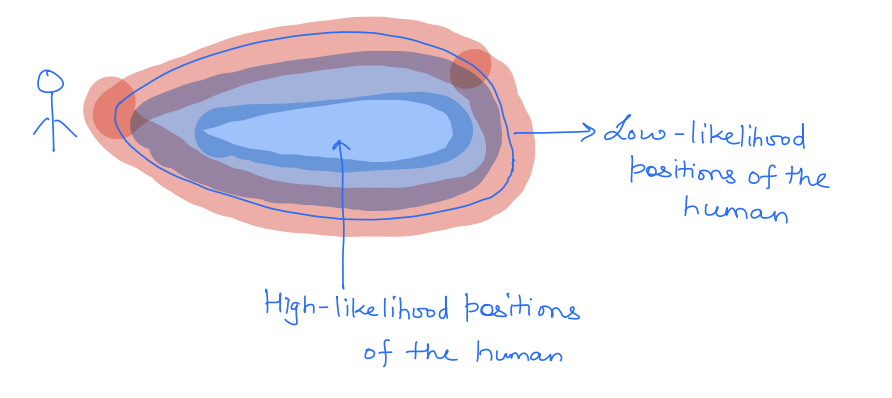 Low-likelihood
positions of the
human
High-likelihood positions
of the human